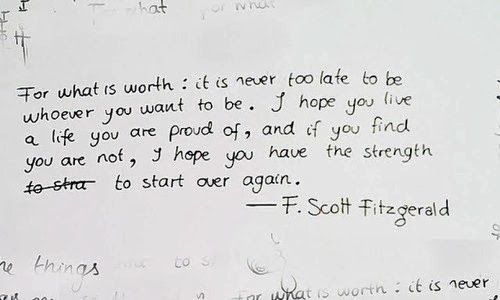 what for what
I
H
For what is worth : it is never too late to be
whoever you want to be. I hope you live
a life you are proud of, and if you find
you are not, I hope you have the strength
to stra to start over again.
— F. Scott Fitzgerald
things to
for what is worth : it is never